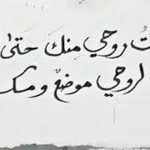 ت روحي منك حتىٰ
لروحي موضع ومسك